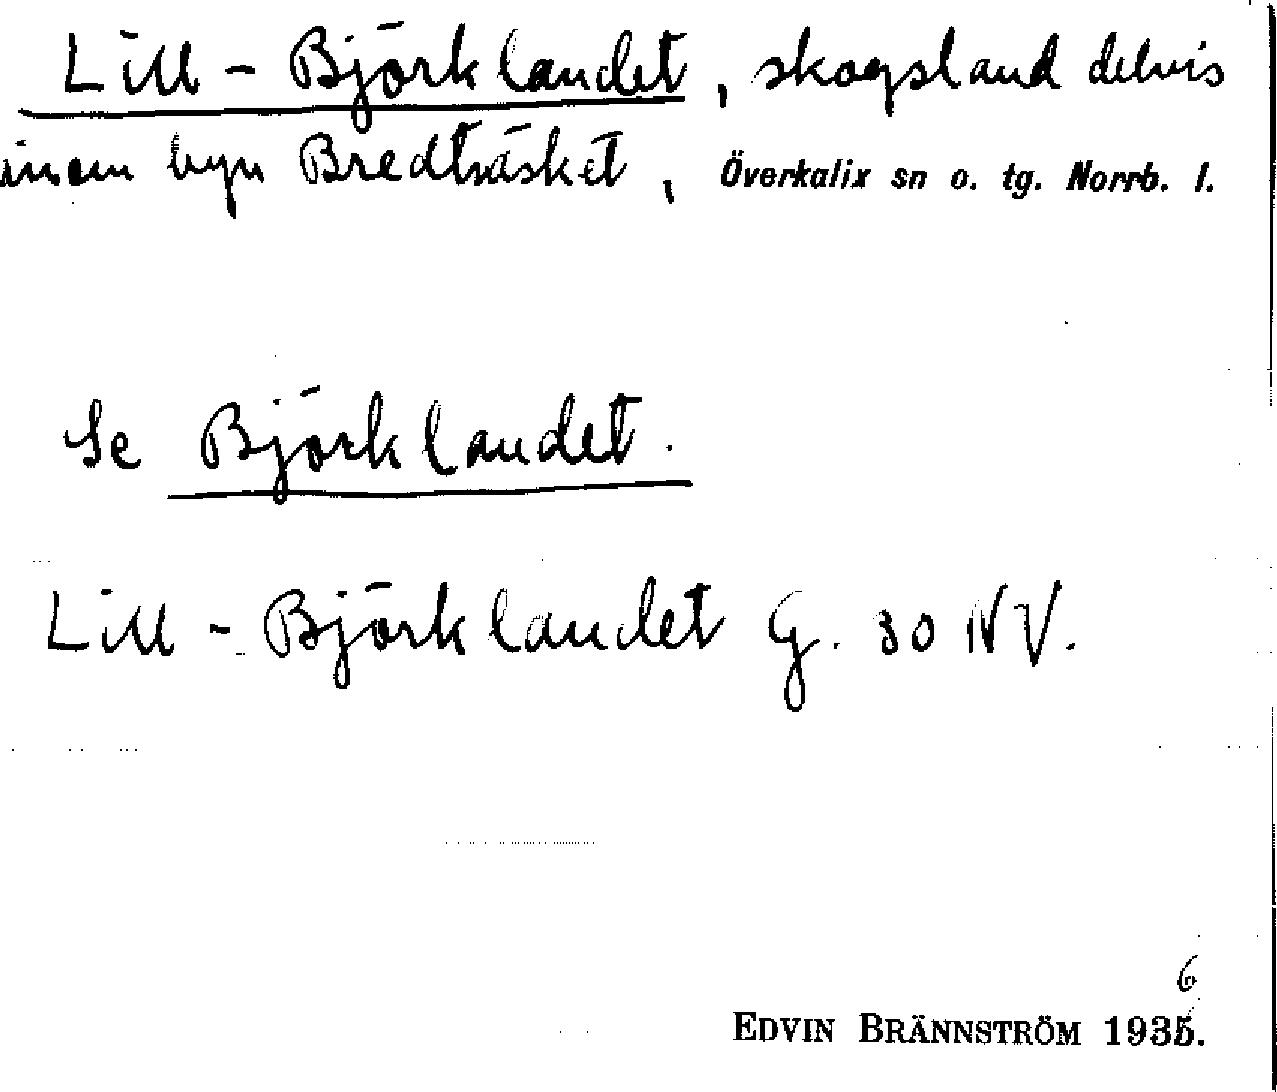 Lill-Björklandet, skogsland delvis
inom byn Bredträsket, Överkalix sn o. tg. Norrb. l.
Se Björklandet.
Lill-Björklandet G. 30 NV.
6
EDVIN BRÄNNSTRÖM 1935.